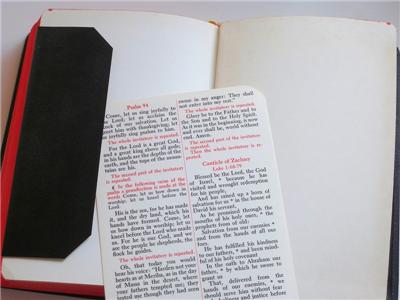 Psalm 94
Come, let us sing joyfully to
the Lord; let us acclaim the
Rock of our salvation. Let us
greet him with thanksgiving; let
us joyfully sing psalms to him.
The whole invitatory is repeated.
For the Lord is a great God,
and a great king above all gods;
in his hands are the depths of the
earth, and the tops of the moun-
tains are his.
The second part of the invitatory
is repeated.
¶ In the following verse of the
psalm a genuflection is made at the
words: Come, let us bow down in
worship; let us kneel before the
Lord.
His is the sea, for he has made
it, and the dry land, which his
hands have formed. Come, let
us bow down in worship; let us
kneel before the Lord who made
us. For he is our God, and we
are the people he shepherds, the
flock he guides.
The whole invitatory is repeated.
Oh, that today you would
hear his voice: "Harden not your
hearts as at Meriba, as in the day
of Massa in the desert, where
your fathers tempted me; they
tested me though they had seen
swore in my anger: They shall
not enter into my rest."
The whole invitatory is repeated.
Glory be to the Father and to
the Son and to the Holy Spirit.
As it was in the beginning, is now
and ever shall be, world without
end. Amen.
The second part of the invitatory
is repeated.
Then the whole invitatory is re-
peated.
Canticle of Zachary
Luke 1:68-79
Blessed be the Lord, the God
of Israel, * because he has
visited and wrought redemption
for his people,
And has raised up a horn of
salvation for us * in the house of
David his servant,
As he promised through the
mouths of his holy ones, * the
prophets from of old:
Salvation from our enemies *
and from the hands of all our
foes.
He has fulfilled his kindness
to our fathers, * and been mind-
ful of his holy covenant
In the oath to Abraham our
father, * by which he swore to
grant us
That, delivered from the
hands of our enemies, * we
should serve him without fear